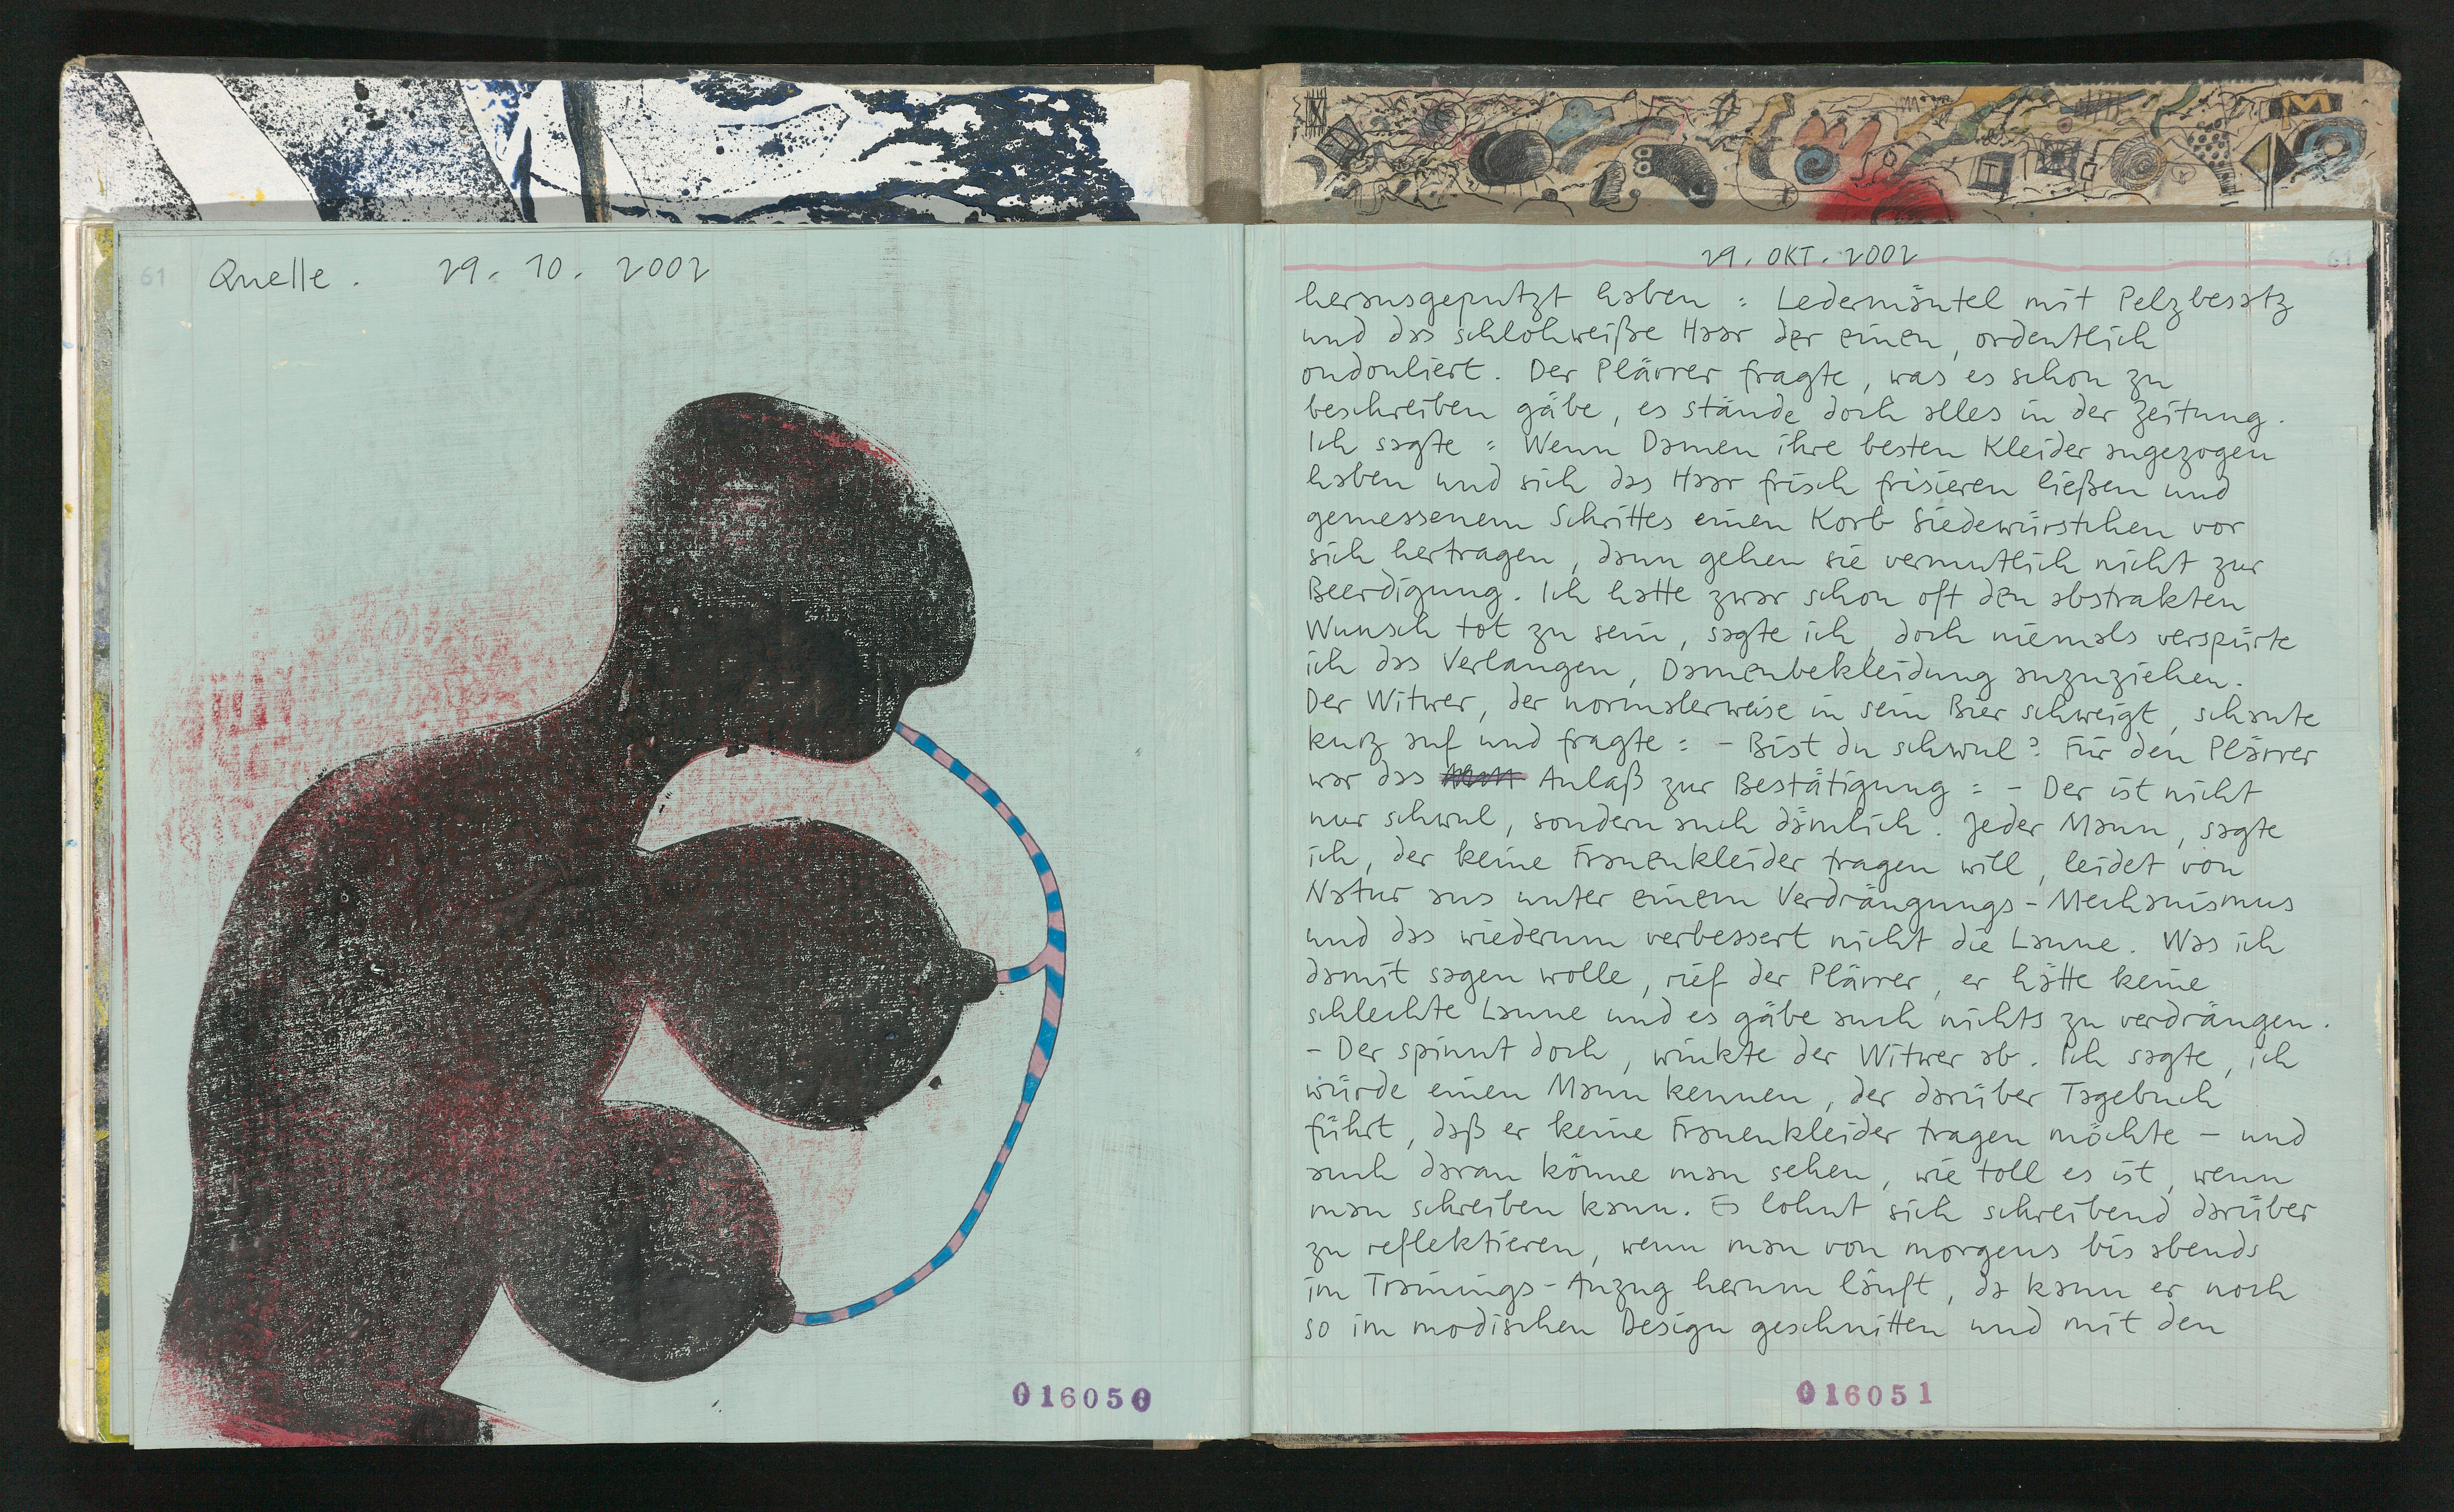 61
Quelle. 29. 10. 2002
016050
29. OKT. 2002
61
herausgeputzt haben: Ledermäntel mit Pelzbesatz
und das schlohweiße Haar der einen, ordentlich
ondouliert. Der Plärrer fragte, was es schon zu
beschreiben gäbe, es stände doch alles in der Zeitung.
Ich sagte: Wenn Damen ihre besten Kleider angezogen
haben und sich das Haar frisch frisieren ließen und
gemessenem Schrittes einen Korb Siedewürstchen vor
sich hertragen, dann gehen sie vermutlich nicht zur
Beerdigung. Ich hatte zwar schon oft den abstrakten
Wunsch tot zu sein, sagte ich, doch niemals verspürte
ich das Verlangen, Damenbekleidung anzuziehen.
Der Witwer, der normalerweise in sein Bier schweigt, schaute
kurz auf und fragte: - Bist du schwul? Für den Plärrer
war das Anlaß zur Bestätigung: - Der ist nicht
nur schwul, sondern auch dämlich. Jeder Mann, sagte
ich, der keine Frauenkleider tragen will, leidet von
Natur aus unter einem Verdrängungs-Mechanismus
und das wiederum verbessert nicht die Laune. Was ich
damit sagen wolle, rief der Plärrer, er hätte keine
schlechte Laune und es gäbe auch nichts zu verdrängen.
- Der spinnt doch, winkte der Witwer ab. Ich sagte, ich
würde einen Mann kennen, der darüber Tagebuch
führt, daß er keine Frauenkleider tragen möchte - und
auch daran könne man sehen, wie toll es ist, wenn
man schreiben kann. Es lohnt sich schreibend darüber
zu reflektieren, wenn man von morgens bis abends
im Trainings-Anzug herum läuft, da kann er noch
so im modischen Design geschnitten und mit den
016051